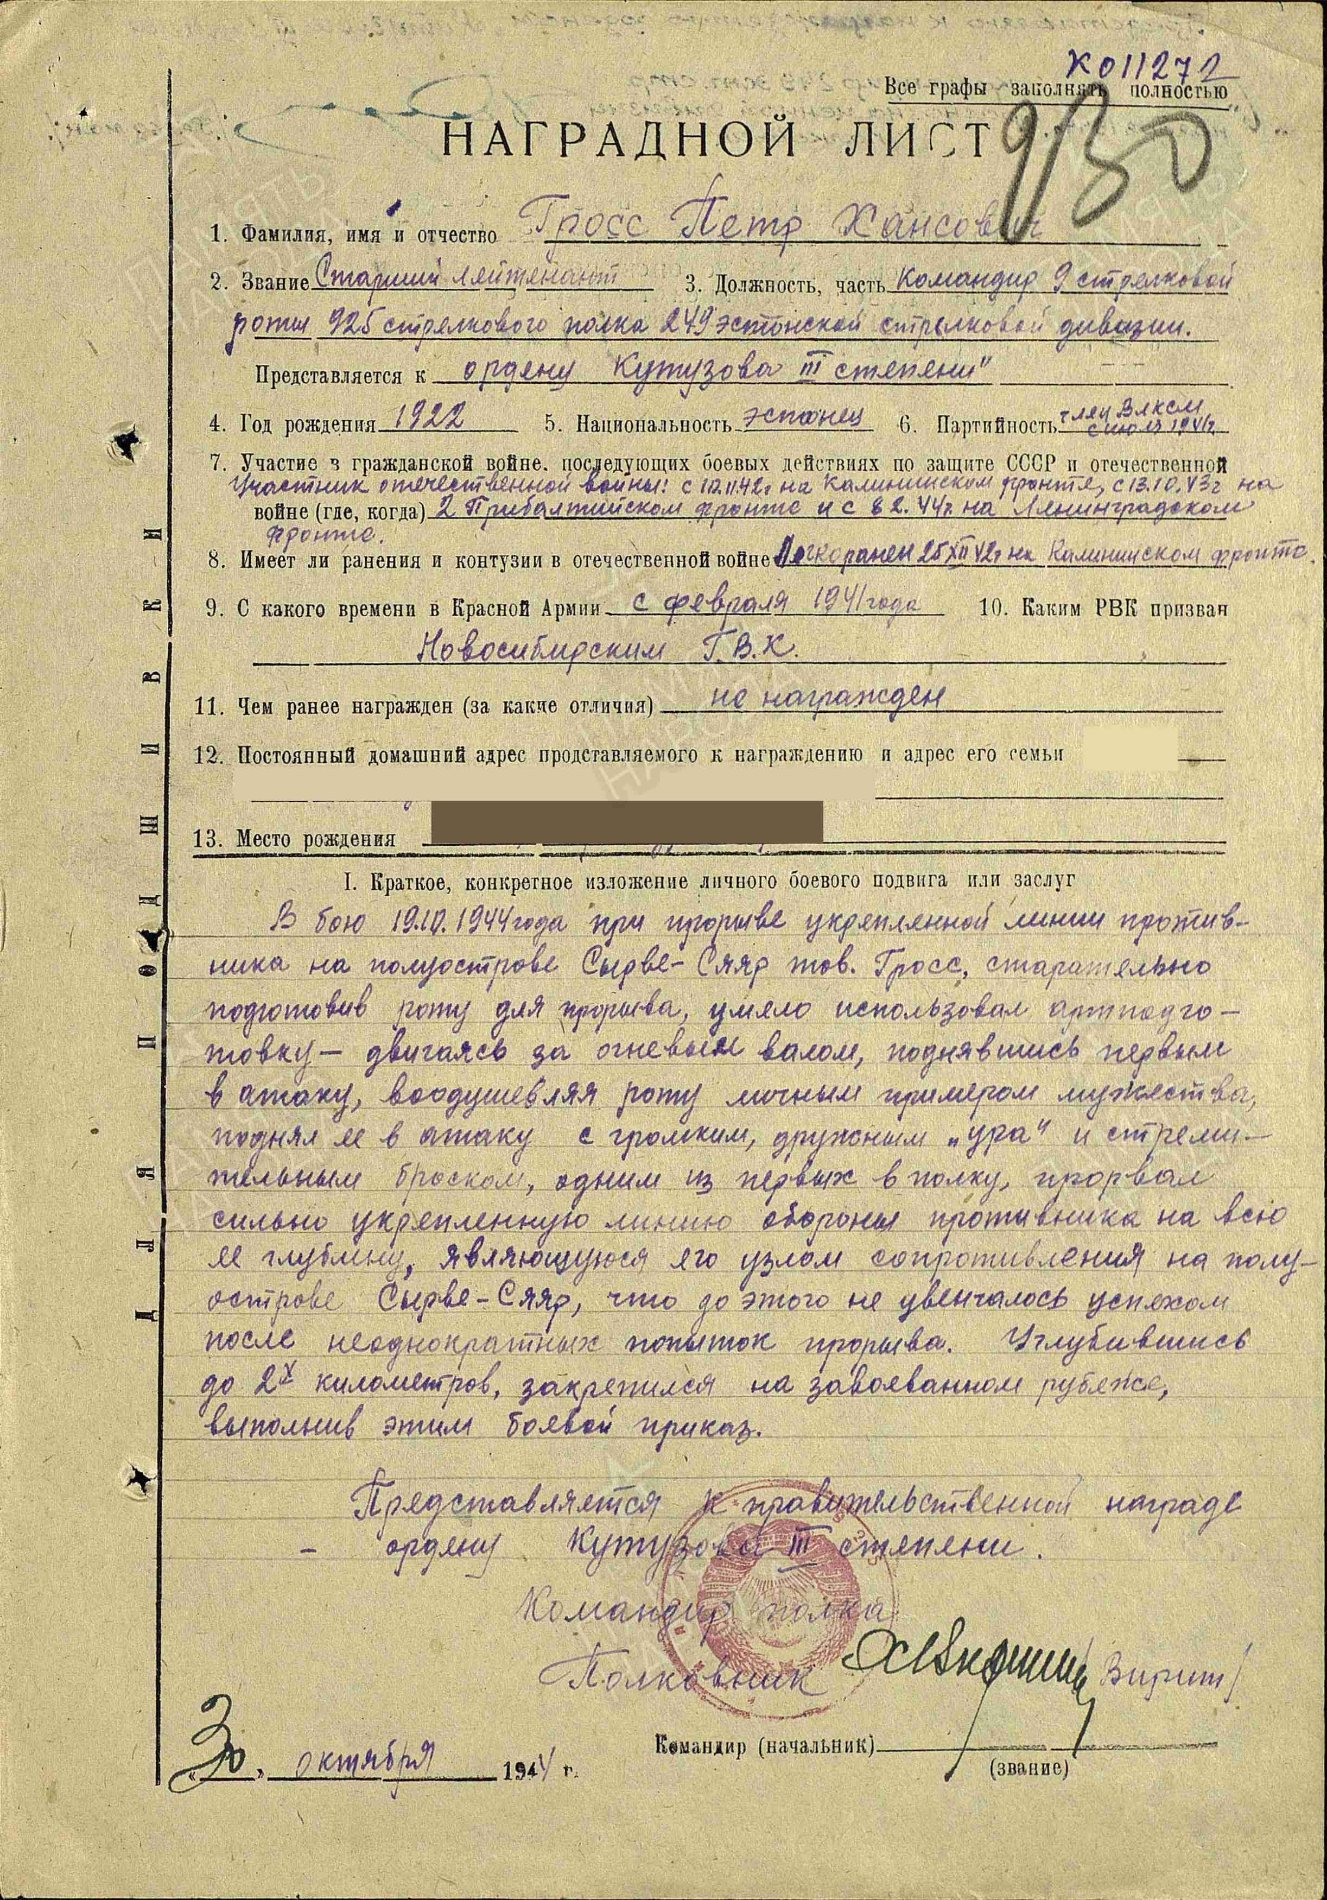 К011272
Все графы заполнять полностью
НАГРАДНОЙ ЛИСТ
1. Фамилия, имя и отчество Гросс Петр Хансович
2. Звание Старший лейтенант 3. Должность, часть Командир 9 стрелковой
роты 925 стрелкового полка 249 эстонской стрелковой дивизии.
Представляется к ордену Кутузова III степени"
4. Год рождения 1922 5. Национальность эстонец 6. Партийность член ВЛКСМ
7. Участие в гражданской войне, последующих боевых действиях по защите СССР и отечественной
Участник отечественной войны: с 10.11.42г на Калининском фронте, с 13.10.43г на
войне (где, когда) 2 Прибалтийском фронте и с 8 2.44г. на Ленинградском
фронте.
8. Имеет ли ранения и контузии в отечественной войне Легкоранен 25 XII 42г на Калининском фронте.
9. С какого времени в Красной Армии с февраля 1941 года 10. Каким РВК призван
Новосибирским Г.В.К.
11. Чем ранее награжден (за какие отличия) не награжден
12. Постоянный домашний адрес представляемого к награждению и адрес его семьи
13. Место рождения
I. Краткое, конкретное изложение личного боевого подвига или заслуг
В бою 19.10.1944 года при прорыве укрепленной линии против-
ника на полуострове Сырве-Сяяр тов. Гросс, старательно
подготовив роту для прорыва, умело использовал артподго-
товку - двигаясь за огневым валом, поднявшись первым
в атаку, воодушевляя роту личным примером мужества,
поднял ее в атаку с громким, дружным „ура" и стреми-
тельным броском, одним из первых в полку, прорвал
сильно укрепленную линию обороны противника на всю
ее глубину, являющуюся его узлом сопротивления на полу-
острове Сырве-Сяяр, что до этого не увенчалось успехом
после неоднократных попыток прорыва. Углубившись
до 2х километров, закрепился на завоеванном рубеже,
выполнив этим боевой приказ.
Представляется к правительственной награде
- ордену Кутузова III степени.
Командир полка
Полковник /Вирит/
Командир (начальник)
(звание)
„30" октября 1944 г.
ДЛЯ ПОДШИВКИ